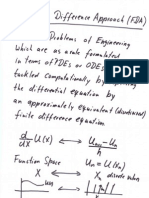 Difference Approach (FDA)
Problems of Engineering
which are as a rule formulated
in terms of PDEs or ODEs
tackled computationally by
the differential equation by
an approximately equivalent (discretized)
finite difference equation.
d/dx U(x) ↔ Un+1 − Un
Function Space Un = U(Xn)
X ↔ Xn discrete values